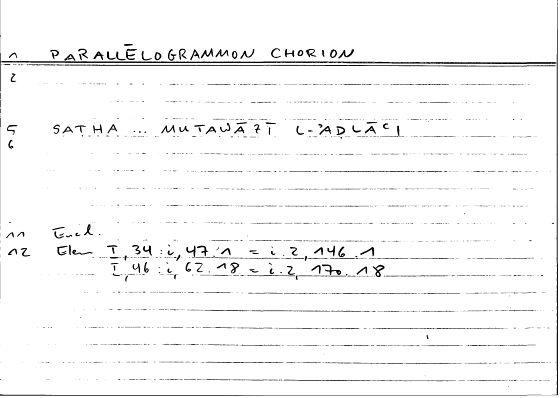 1 PARALLĒLOGRAMMON CHORION
2
5 SATHA ... MUTAWĀZĪ L-ʾADLĀʿI
6
11 Eucl.
12 Elem I, 34 : i, 47.1 = i.2, 146.1
I, 46 : i, 62.18 = i.2, 170.18